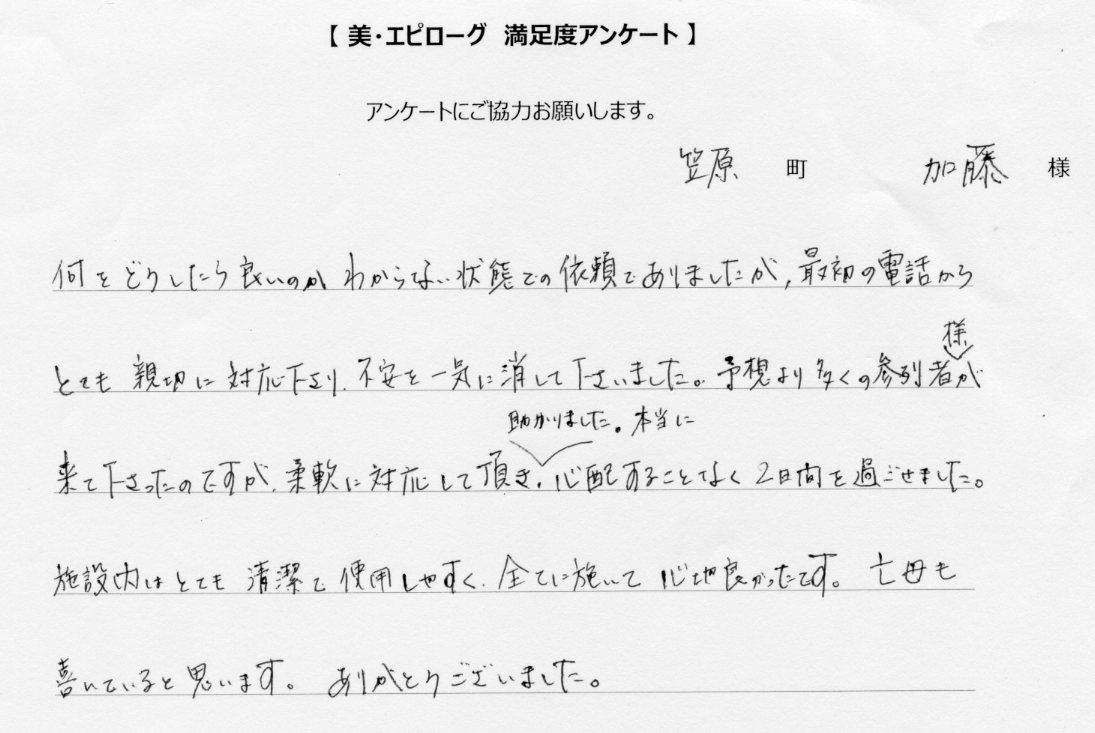 【 美・エピローグ 満足度アンケート 】
アンケートにご協力お願いします。
笠原 町 加藤 様
何をどうしたら良いのか わからない状態での依頼でありましたが、最初の電話から
とても 親切に 対応下さり、不安を一気に消して下さいました。予想より多くの参列者様が
来て下さったのですが、柔軟に対応して頂き、助かりました。本当に心配することなく2日間を過ごせました。
施設内はとても 清潔で 使用しやすく、全てに於いて 心地良かったです。 亡母も
喜んでいると思います。 ありがとうございました。